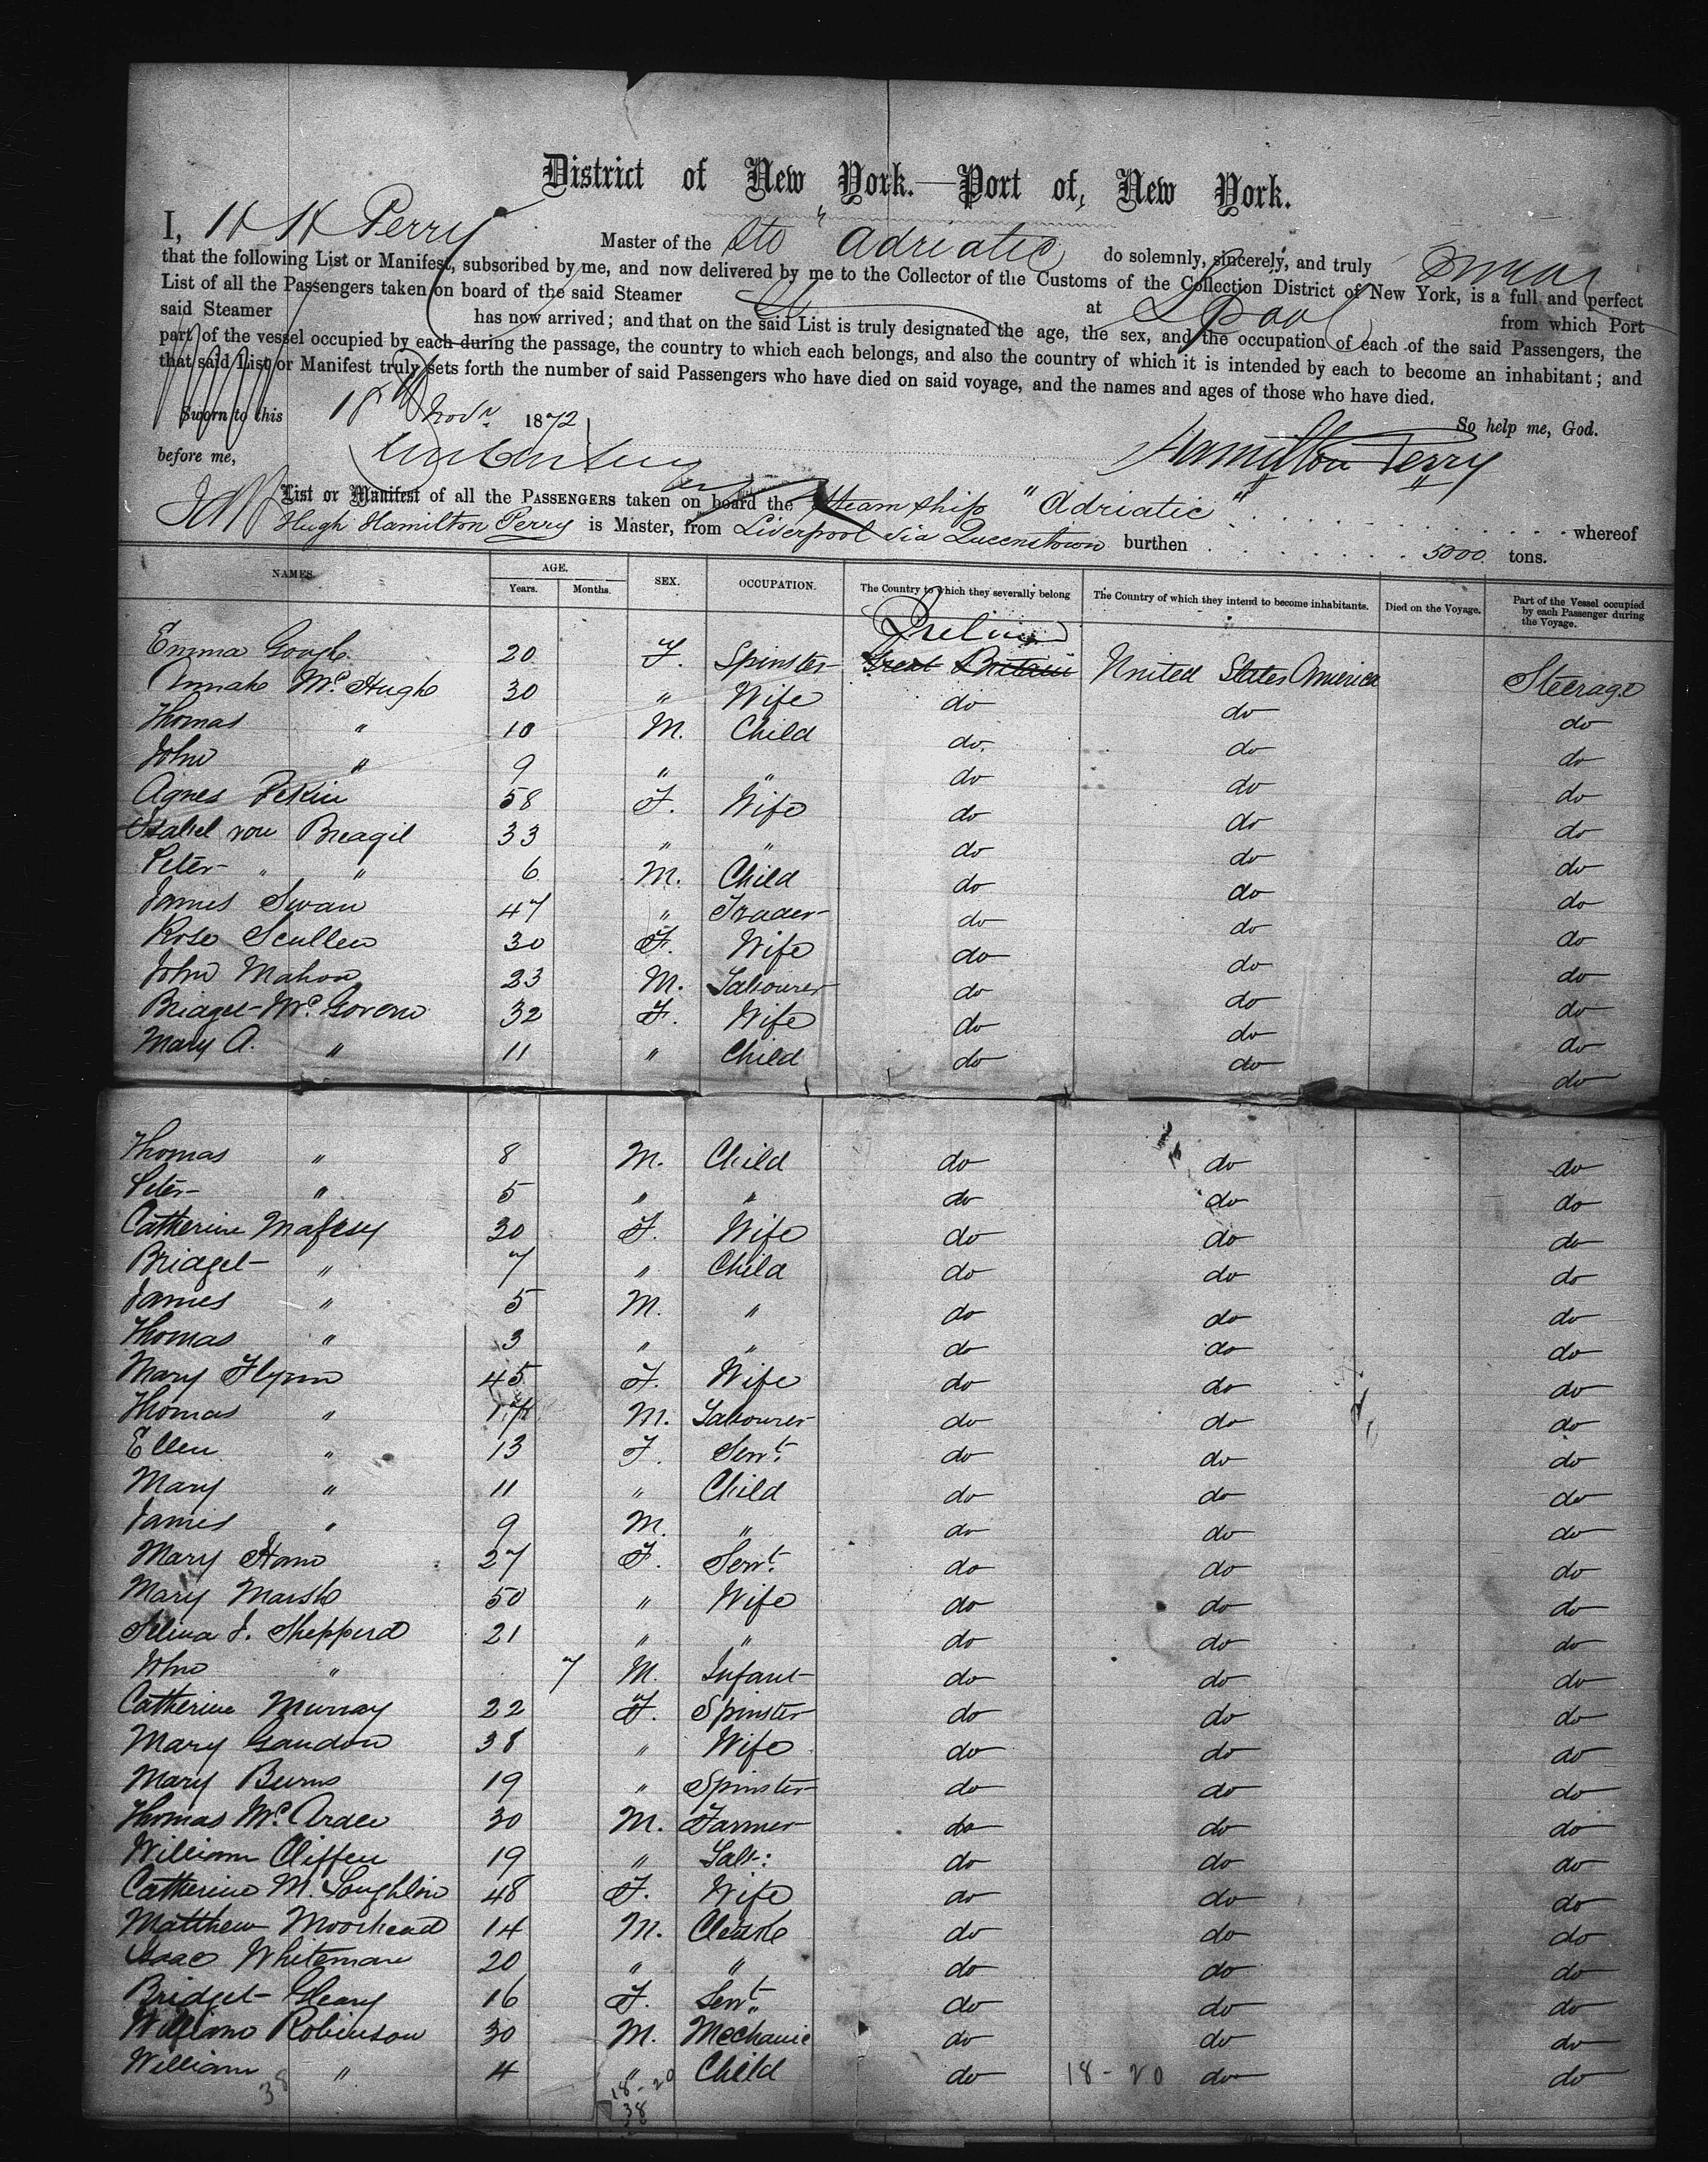 District of New York.—Port of, New York.
I, H H Perry Master of the Str "Adriatic do solemnly, sincerely, and truly swear
that the following List or Manifest, subscribed by me, and now delivered by me to the Collector of the Customs of the Collection District of New York, is a full and perfect
List of all the Passengers taken on board of the said Steamer at L'pool from which Port
said Steamer has now arrived; and that on the said List is truly designated the age, the sex, and the occupation of each of the said Passengers, the
part of the vessel occupied by each during the passage, the country to which each belongs, and also the country of which it is intended by each to become an inhabitant; and
that said List or Manifest truly sets forth the number of said Passengers who have died on said voyage, and the names and ages of those who have died.
Sworn to this 18th Novr 1872 So help me, God.
before me, Hamilton Perry
List or Manifest of all the PASSENGERS taken on board the Steam ship "Adriatic" whereof
Hugh Hamilton Perry is Master, from Liverpool via Queenstown burthen 5000 tons.
NAMES. AGE. SEX. OCCUPATION. The Country to which they severally belong The Country of which they intend to become inhabitants. Died on the Voyage. Part of the Vessel occupied by each Passenger during the Voyage.
Years. Months.
Ireland
Emma Gough 20 F. Spinster Great Britain United States America Steerage
Annah McHugh 30 " Wife do do do
Thomas " 10 M. Child do do do
John " 9 " " do do do
Agnes Pekin 58 F. Wife do do do
Isabel von Breagil 33 " " do do do
Peter " " 6 M. Child do do do
James Swan 47 " Trader do do do
Rose Scullen 30 F. Wife do do do
John Mahon 23 M. Labourer do do do
Bridget McGovern 32 F. Wife do do do
Mary A. " 11 " Child do do do
Thomas " 8 M. Child do do do
Peter " 5 " " do do do
Catherine 30 F. Wife do do do
Bridget " 7 " Child do do do
James " 5 M. " do do do
Thomas " 3 " " do do do
Mary Flynn 45 F. Wife do do do
Thomas " 17 M. Labourer do do do
Ellen " 13 F. Servt. do do do
Mary " 11 " Child do do do
James " 9 M. " do do do
Mary 27 F. Servt. do do do
Mary Marsh 50 " Wife do do do
Selina J. Shepperd 21 " " do do do
John " 7 M. Infant do do do
Catherine Murray 22 F. Spinster do do do
Mary Gaudon 38 " Wife do do do
Mary Burns 19 " Spinster do do do
Thomas McArdle 30 M. Farmer do do do
William Cliffen 19 " Labr: do do do
Catherine M. Loughlin 48 F. Wife do do do
Matthew Moorhead 14 M. Clerk do do do
Isaac Whiteman 20 " " do do do
Bridget Gleary 16 F. Servt. do do do
William Robinson 30 M. Mechanic do do do
William " 4 " Child do 18-20 do do
38 18-20
38